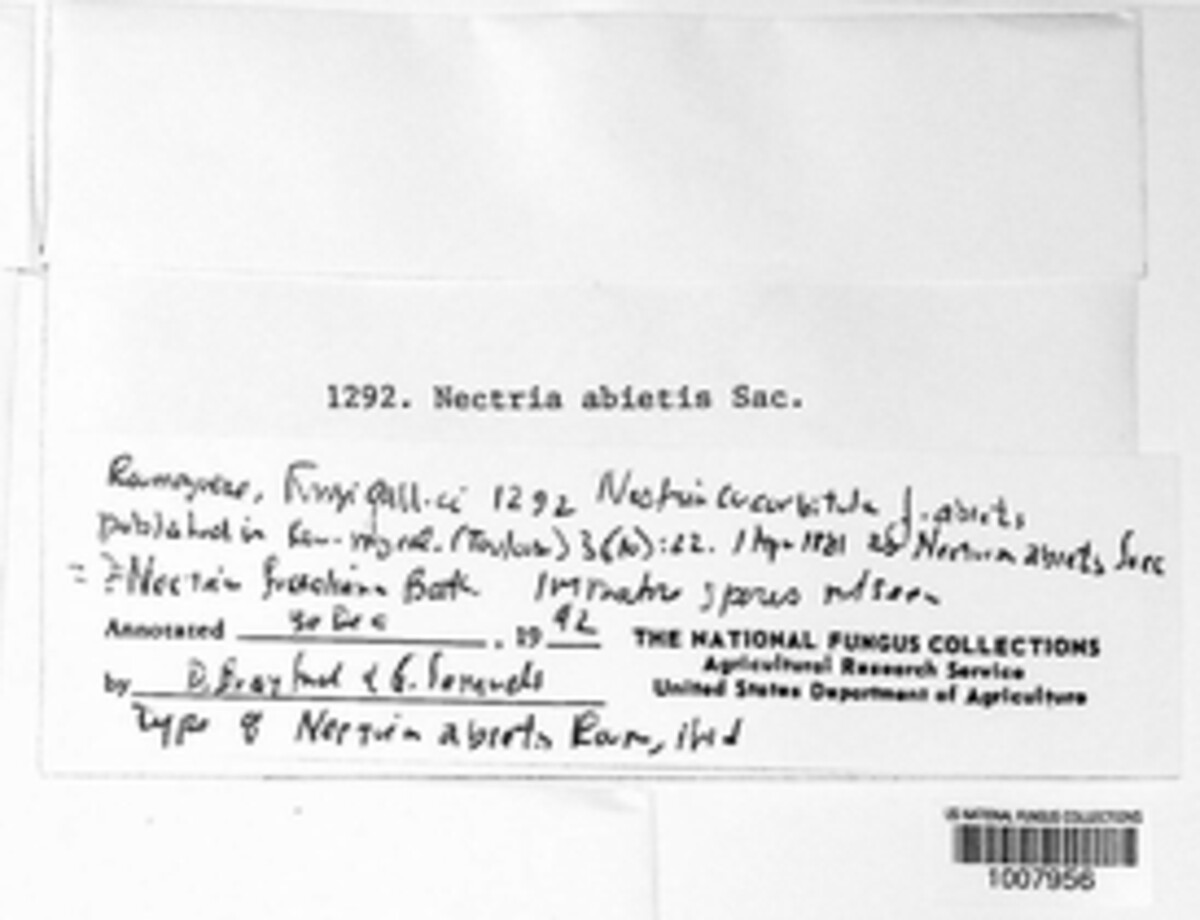 1292. Nectria abietis Sac.
Roumeguere, Fungi gallici 1292 Nectria cucurbitula f. abietis
published in (Toulouse) 3(10): 1881 as Nectria abietis Sacc
= ? Nectria Both Immature spores not seen
Annotated 30 Dec , 19 92
THE NATIONAL FUNGUS COLLECTIONS
Agricultural Research Service
by D. Brayford & G. Samuels
United States Department of Agriculture
Type of Nectria abietis Roum, ibid
US NATIONAL FUNGUS COLLECTIONS
1007956